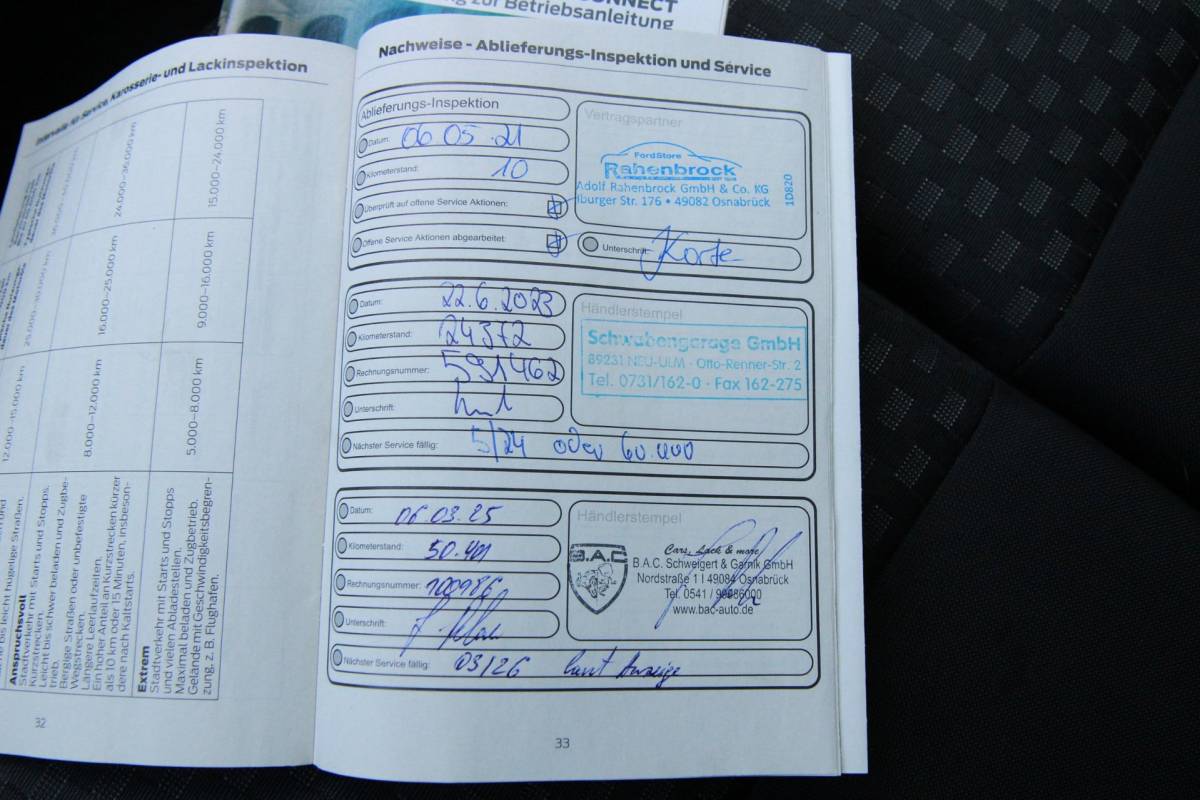 CONNECT
zur Betriebsanleitung
Intervalle für Service, Karosserie- und Lackinspektion
24.000–36.000 km
15.000–24.000 km
16.000–25.000 km
9.000–16.000 km
12.000–15.000 km
8.000–12.000 km
5.000–8.000 km
bis leicht hügelige Straßen.
Anspruchsvoll
Stadtverkehr mit Starts und Stopps.
Kurzstrecken.
Leicht bis schwer beladen und Zugbe-
trieb.
Bergige Straßen oder unbefestigte
Wegstrecken.
Längere Leerlaufzeiten.
Ein hoher Anteil an Kurzstrecken kürzer
als 10 km oder 15 Minuten, insbeson-
dere nach Kaltstarts.
Extrem
Stadtverkehr mit Starts und Stopps
und vielen Abladestellen.
Maximal beladen und Zugbetrieb.
Gelände mit Geschwindigkeitsbegren-
zung, z. B. Flughafen.
32
Nachweise - Ablieferungs-Inspektion und Service
Ablieferungs-Inspektion
Datum: 06 05.21
Kilometerstand: 10
Überprüft auf offene Service Aktionen:
Offene Service Aktionen abgearbeitet:
Vertragspartner
FordStore
Rahenbrock
Adolf Rahenbrock GmbH & Co. KG
Iburger Str. 176 • 49082 Osnabrück
1D820
Unterschrift: Korte
Datum: 22.6.2023
Kilometerstand: 24372
Rechnungsnummer: 591462
Unterschrift:
Händlerstempel
Schwabengarage GmbH
89231 NEU-ULM · Otto-Renner-Str. 2
Tel. 0731/162-0 · Fax 162-275
Nächster Service fällig: 5/24 oder 60.000
Datum: 06.03.25
Kilometerstand: 50.401
Rechnungsnummer: 100986
Unterschrift:
Händlerstempel
B.A.C
Cars, Lack & more
B.A.C. Schweigert & Garnik GmbH
Nordstraße 1 I 49084 Osnabrück
Tel. 0541 / 90986000
www.bac-auto.de
Nächster Service fällig: 03/26 laut Anzeige
33